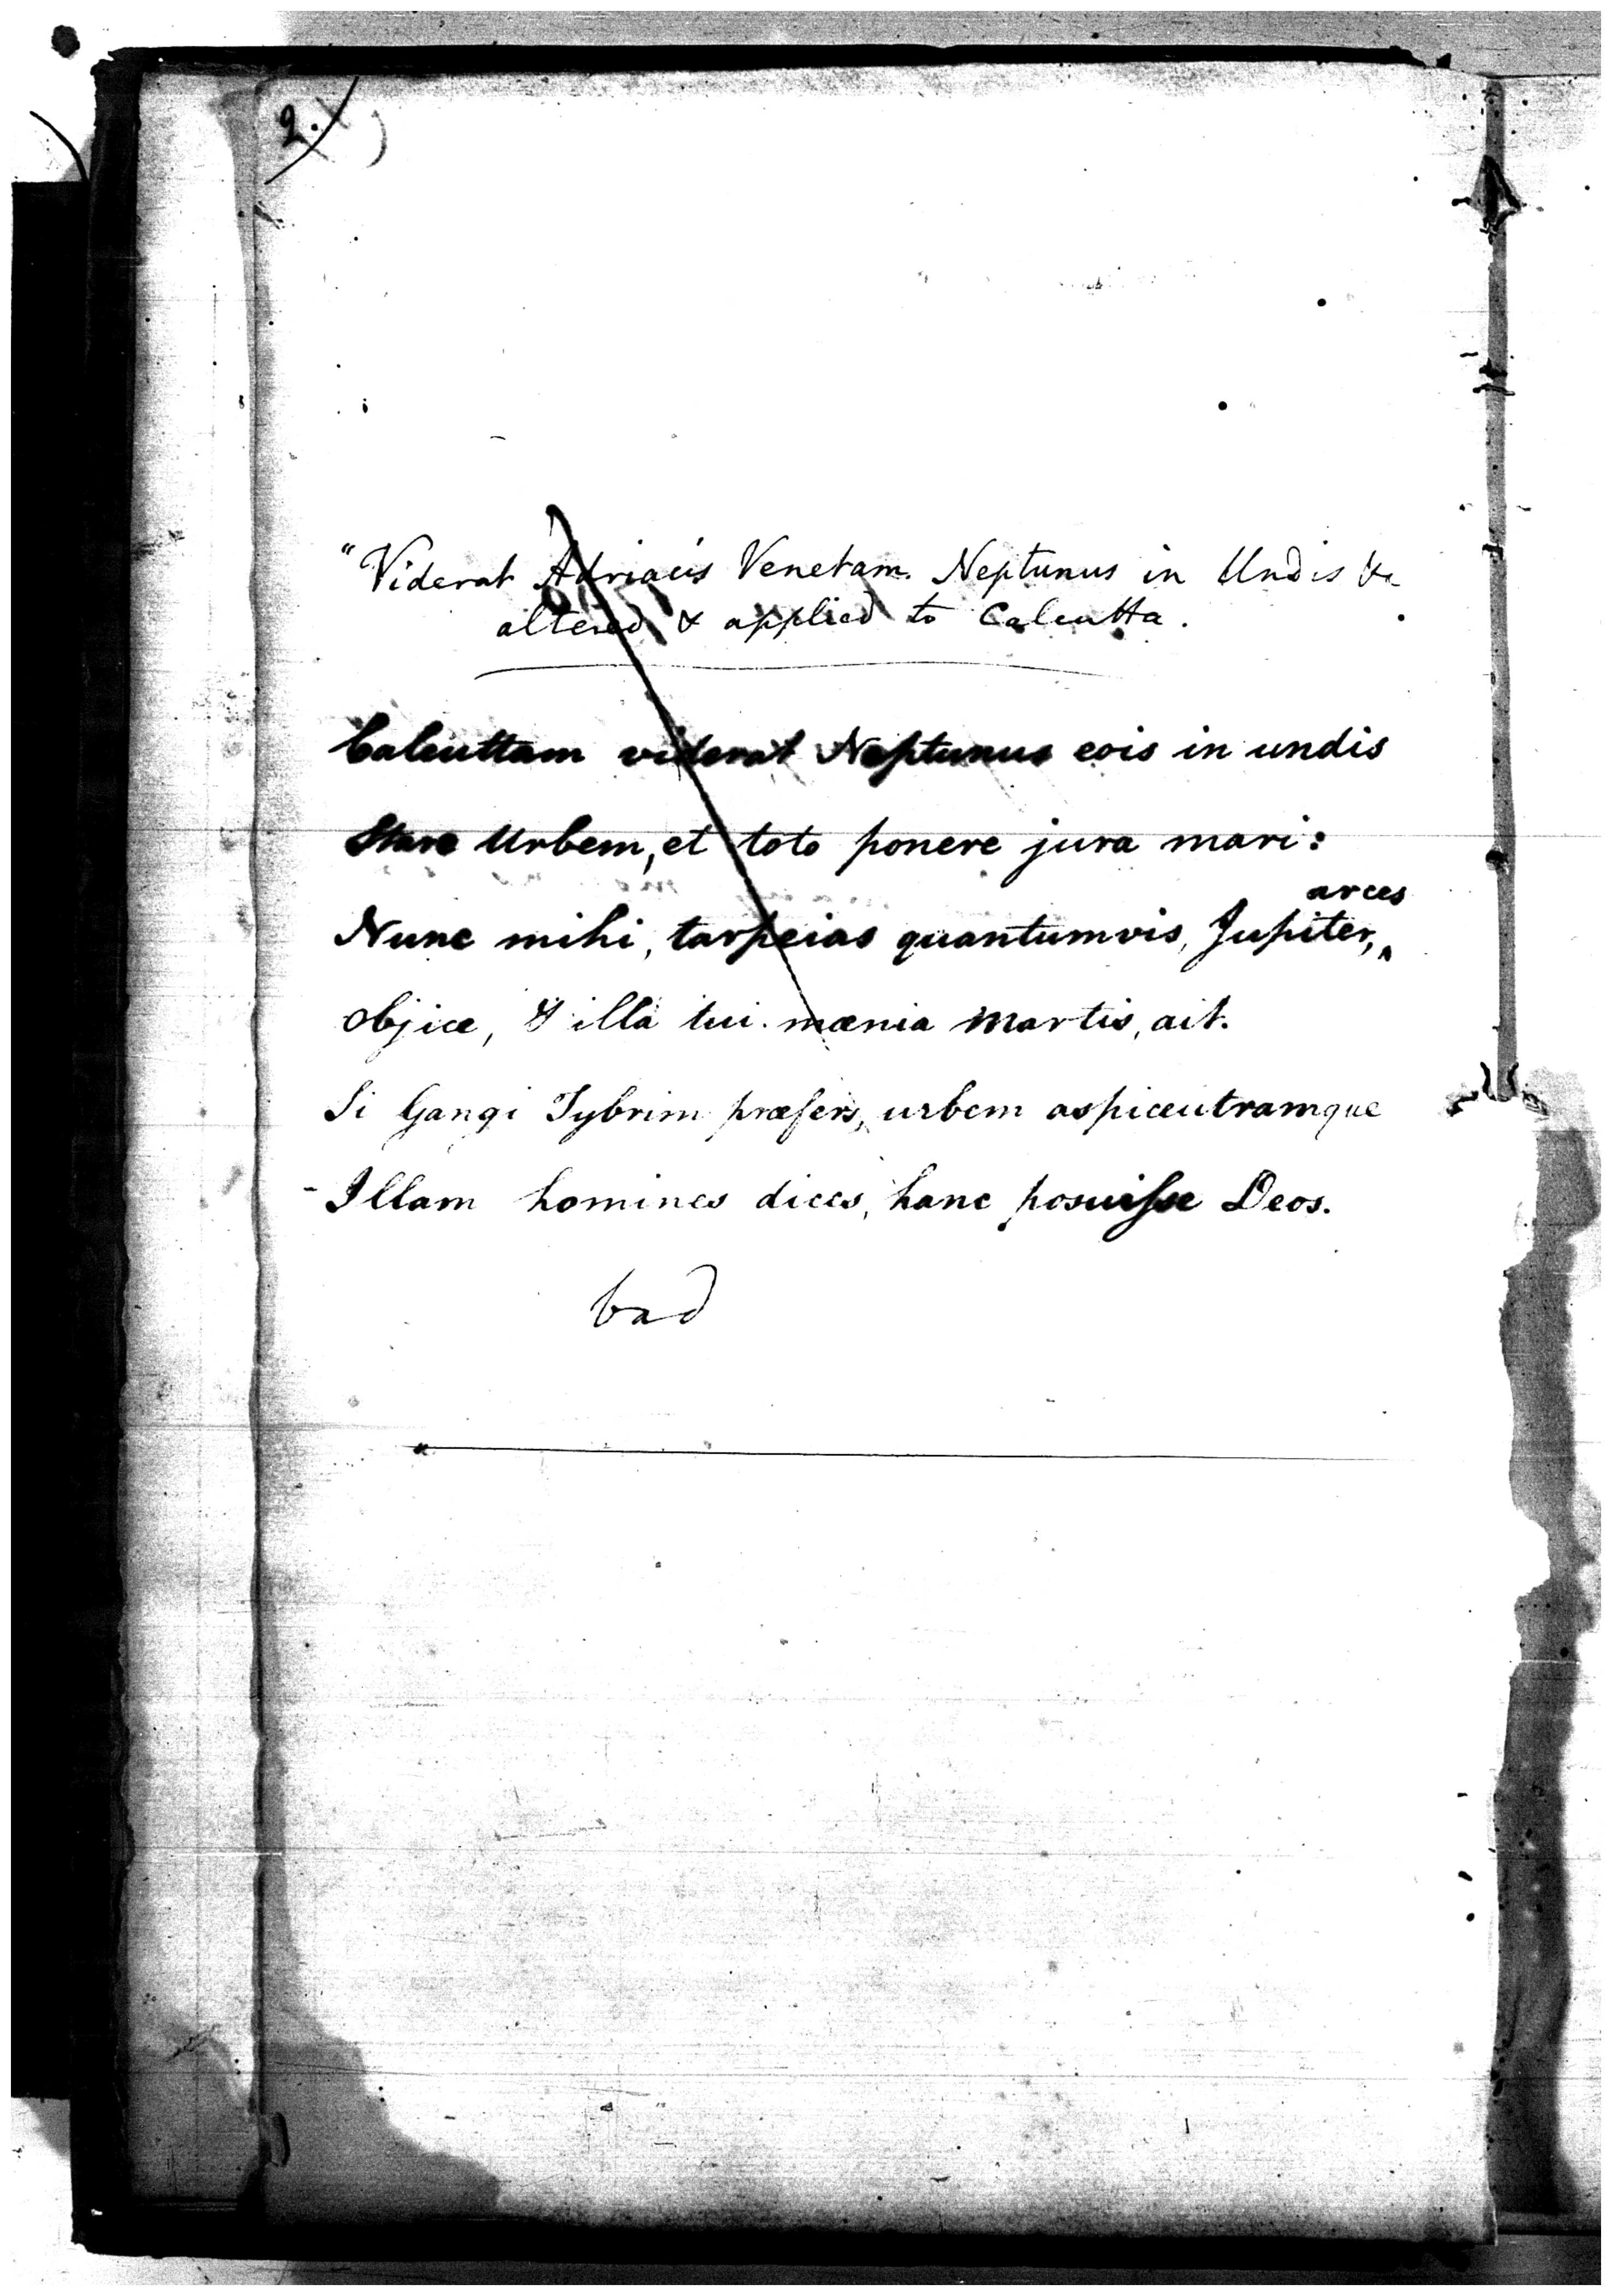 2.
"Viderat Adriacis Venetam Neptunus in Undis &c
altered & applied to Calcutta.
Calcuttam viderat Neptunus eois in undis
Stare Urbem, et toto ponere jura mari:
Nunc mihi, tarpeias quantumvis, Jupiter, arces
objice, & illa tui mœnia Martis, ait.
Si Gangi Tybrim præfers, urbem aspice utramque
Illam homines dices, hanc posuisse Deos.
bad